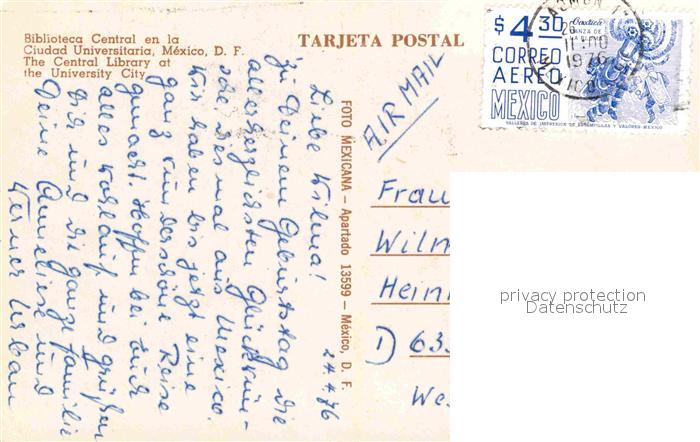 Biblioteca Central en la
Ciudad Universitaria, México, D. F.
The Central Library at
the University City
TARJETA POSTAL
$4.30
CORREO
AEREO
MEXICO
Oaxaca
DANZA DE
LA PLUMA
TALLERES DE IMPRESION DE ESTAMPILLAS Y VALORES-MEXICO
26
11:00
1976
MEXICO
AIR MAIL
FOTO MEXICANA — Apartado 13599 — México, D. F.
24.4.76
Liebe Wilma!
Zu Deinem Geburtstag die
allerherzlichsten Glückwün-
sche diesmal aus Mexico.
Wir haben bis jetzt eine
ganz wunderschöne Reise
gemacht. Hoffen bei Euch
alles wohlauf und grüßen
Dich und die ganze Familie
Deine Anneliese und
Werner Urban
Frau
Wilm
Hein
D 633
We
privacy protection
Datenschutz